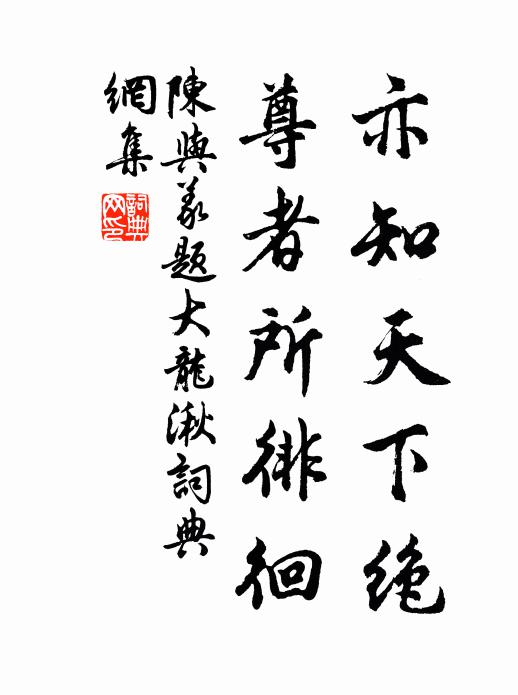 亦知天下絶
尊者所徘徊
陳與義題大龍湫詞典
網集
詞典
网印